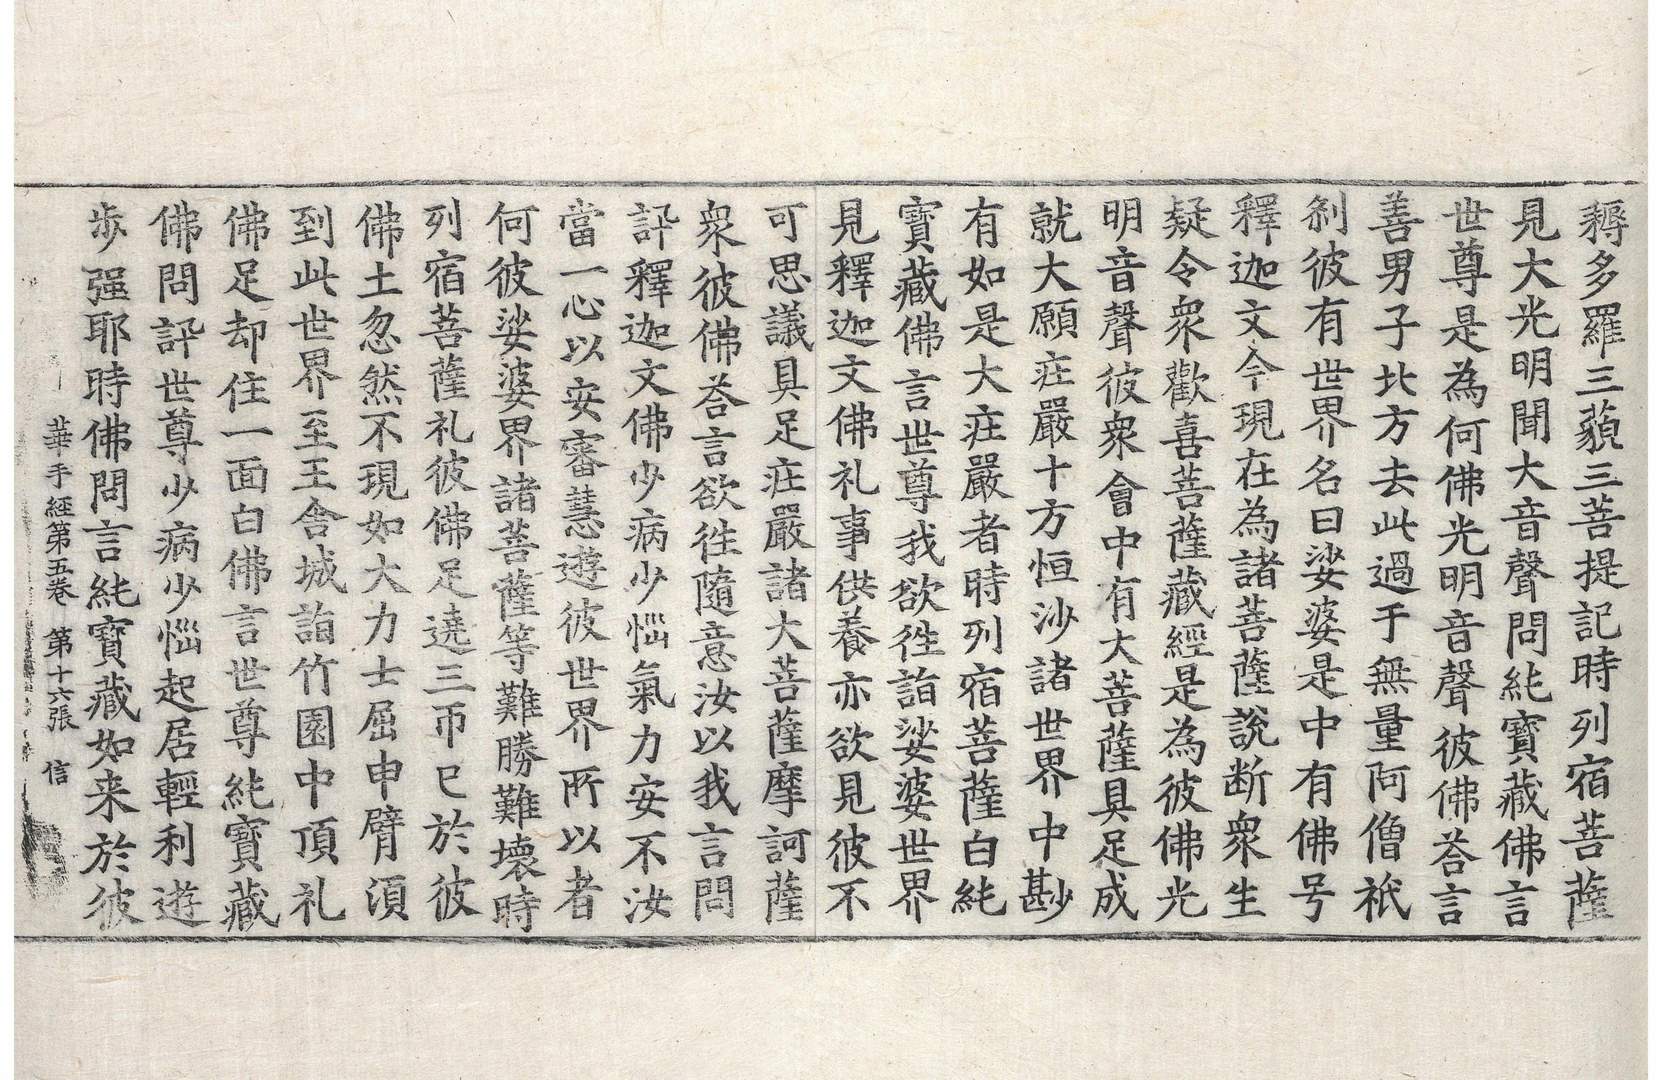 耨多羅三藐三菩提記時列宿菩薩
見大光明聞大音聲問純寶藏佛言
世尊是為何佛光明音聲彼佛荅言
善男子北方去此過于無量阿僧祇
刹彼有世界名曰娑婆是中有佛号
釋迦文今現在為諸菩薩說断衆生
疑令衆歡喜菩薩藏經是為彼佛光
明音聲彼衆會中有大菩薩具足成
就大願庄嚴十方恒沙諸世界中尠
有如是大庄嚴者時列宿菩薩白純
寶藏佛言世尊我欲徃詣娑婆世界
見釋迦文佛礼事供養亦欲見彼不
可思議具足庄嚴諸大菩薩摩訶薩
衆彼佛荅言欲徃隨意汝以我言問
訊釋迦文佛少病少惱氣力安不汝
當一心以安審慧遊彼世界所以者
何彼娑婆界諸菩薩等難勝難壞時
列宿菩薩礼彼佛足遶三帀已於彼
佛土忽然不現如大力士屈申臂湏
到此世界至王舍城詣竹園中頂礼
佛足却住一面白佛言世尊純寶藏
佛問訊世尊少病少惱起居輕利遊
步强耶時佛問言純寶藏如来於彼
華手經第五卷 第十六張 信